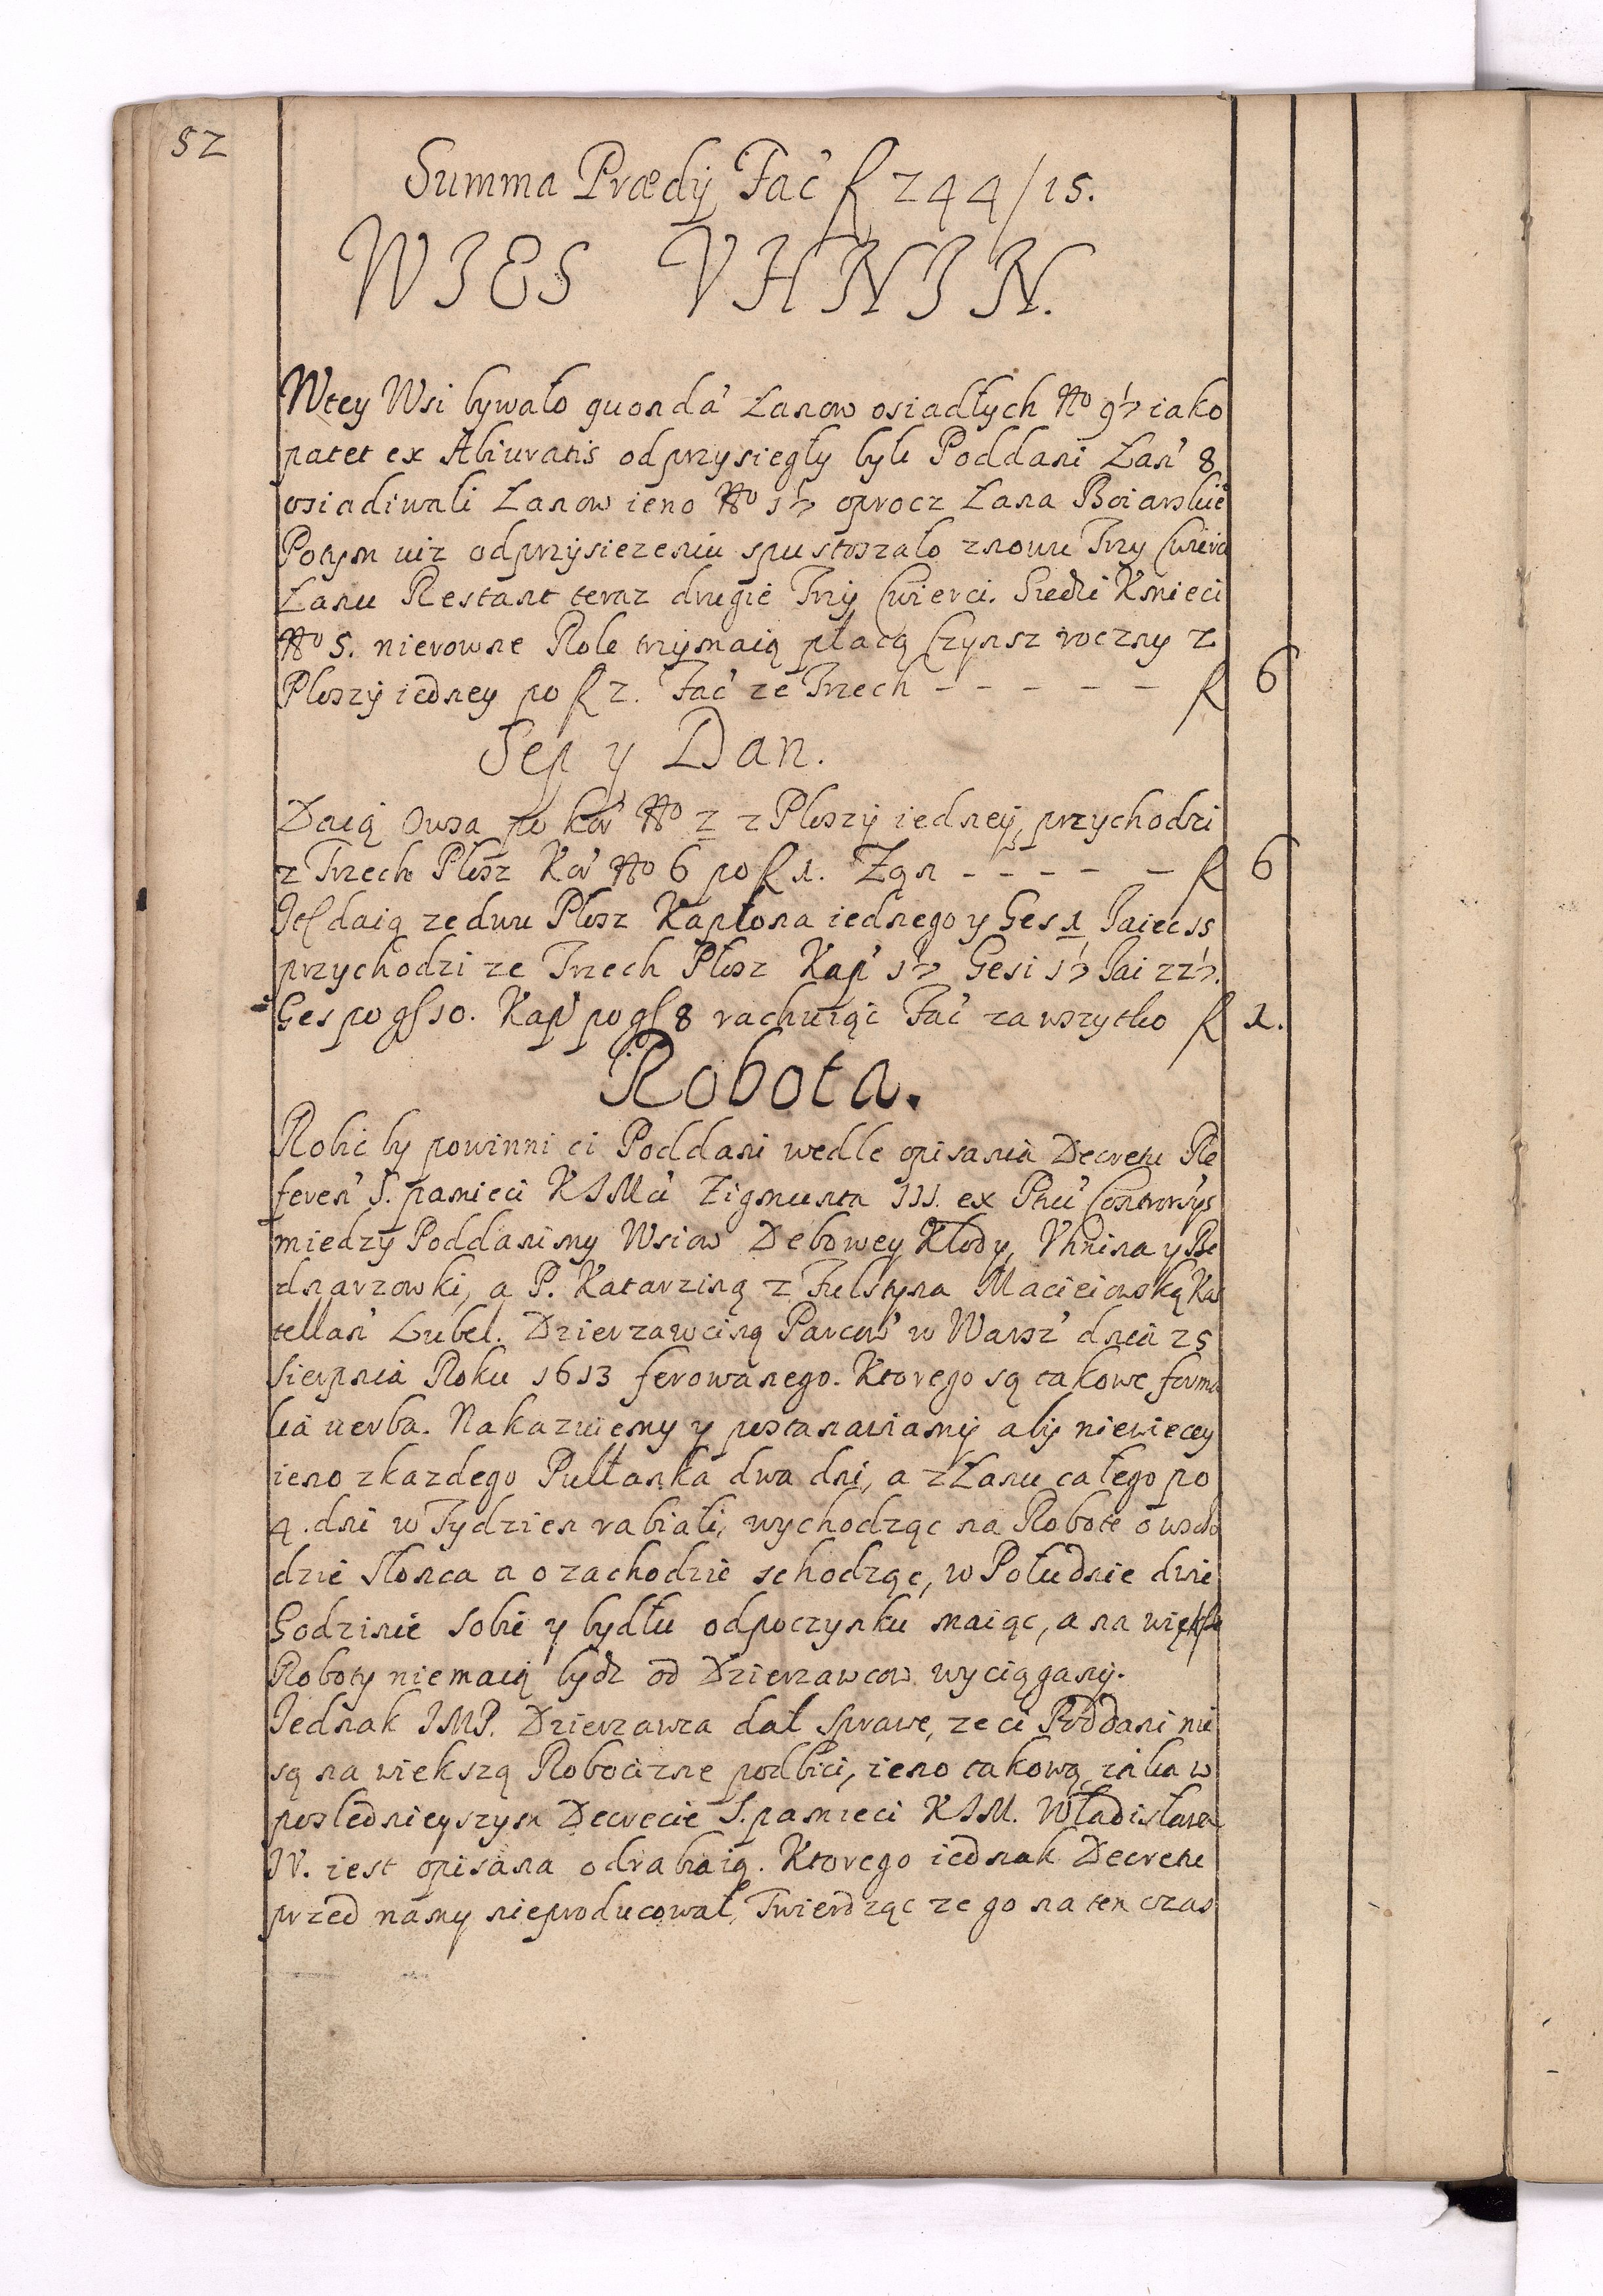 52
Summa Prædÿ Fac' fl 244/15.
WIES VHNIN.
Wtey Wsi bywało quonda' Łanow osiadłych No 9½ iako
patet ex Abiuratis odprzysiegły byli Poddani Łan' 8
osiadiwali Łanow ieno No 1½ oprocz Łana Boiarskie
Potym iuz odprzysiezeniu spustoszało znowu Trzy Cwierci
Łanu Restant teraz drugie Trzy Cwierci. Siedzi Kmieci
No 5. nierowne Role trzymaią płacą Czynsz roczny z
Ploszy iedney po fl 2. Fac' ze Trzech - - - - - fl 6
Sep y Dan.
Daią Owsa po kor' No 2 z Ploszy iedney, przychodzi
z Trzech Plosz Kor' No 6 po fl 1. Zqn - - - - - fl 6
It daią ze dwu Plosz Kapłona iednego y Ges 1 Jaiec 15
przychodzi ze Trzech Plosz Kap' 1½ Gesi 1½ Jai 22½.
Ges po gs 10. Kap' po gs 8 rachuiąc Fac' za wszytko fl 1.
Robota.
Robic by powinni ci Poddani wedle opisania Decretu Re
feren' S. pamieci KJMci Zigmunta III. ex Pncu' Controrsys
miedzy Poddanimy Wsiow Debowey Kłody, Vhnina y Be
dnarzowki, a P. Katarziną z Fulstyna Macieiowską Kas
tellan' Lubel. Dzierzawciną Parcow' w Warsz' dnia 25
Sierpnia Roku 1613 ferowanego. Ktorego są takowe forma
lia uerba. Nakazuiemy y postanawiamy aby niewiecey
ieno zkazdego Pułłanka dwa dni, a z Łanu całego po
4. dni w Tydzien rabiali, wychodząc na Robote o wscho
dzie Słonca a o zachodzie schodząc, w Południe dwie
Godzinie sobie y bydłu odpoczynku maiąc, a na więksse
Roboty niemaią bydz od Dzierzawcow wyciągany.
Jednak JMP. Dzierzawca dał sprawe, ze ci Poddani nie
są na wiekszą Robocizne podbici, ieno takową iaka w
poslednieyszym Decrecie S. pamieci KJM. Władisława
IV. iest opisana odrabiaią. Ktorego iednak Decretu
przed namy nieproducował, Twierdząc ze go na ten czas